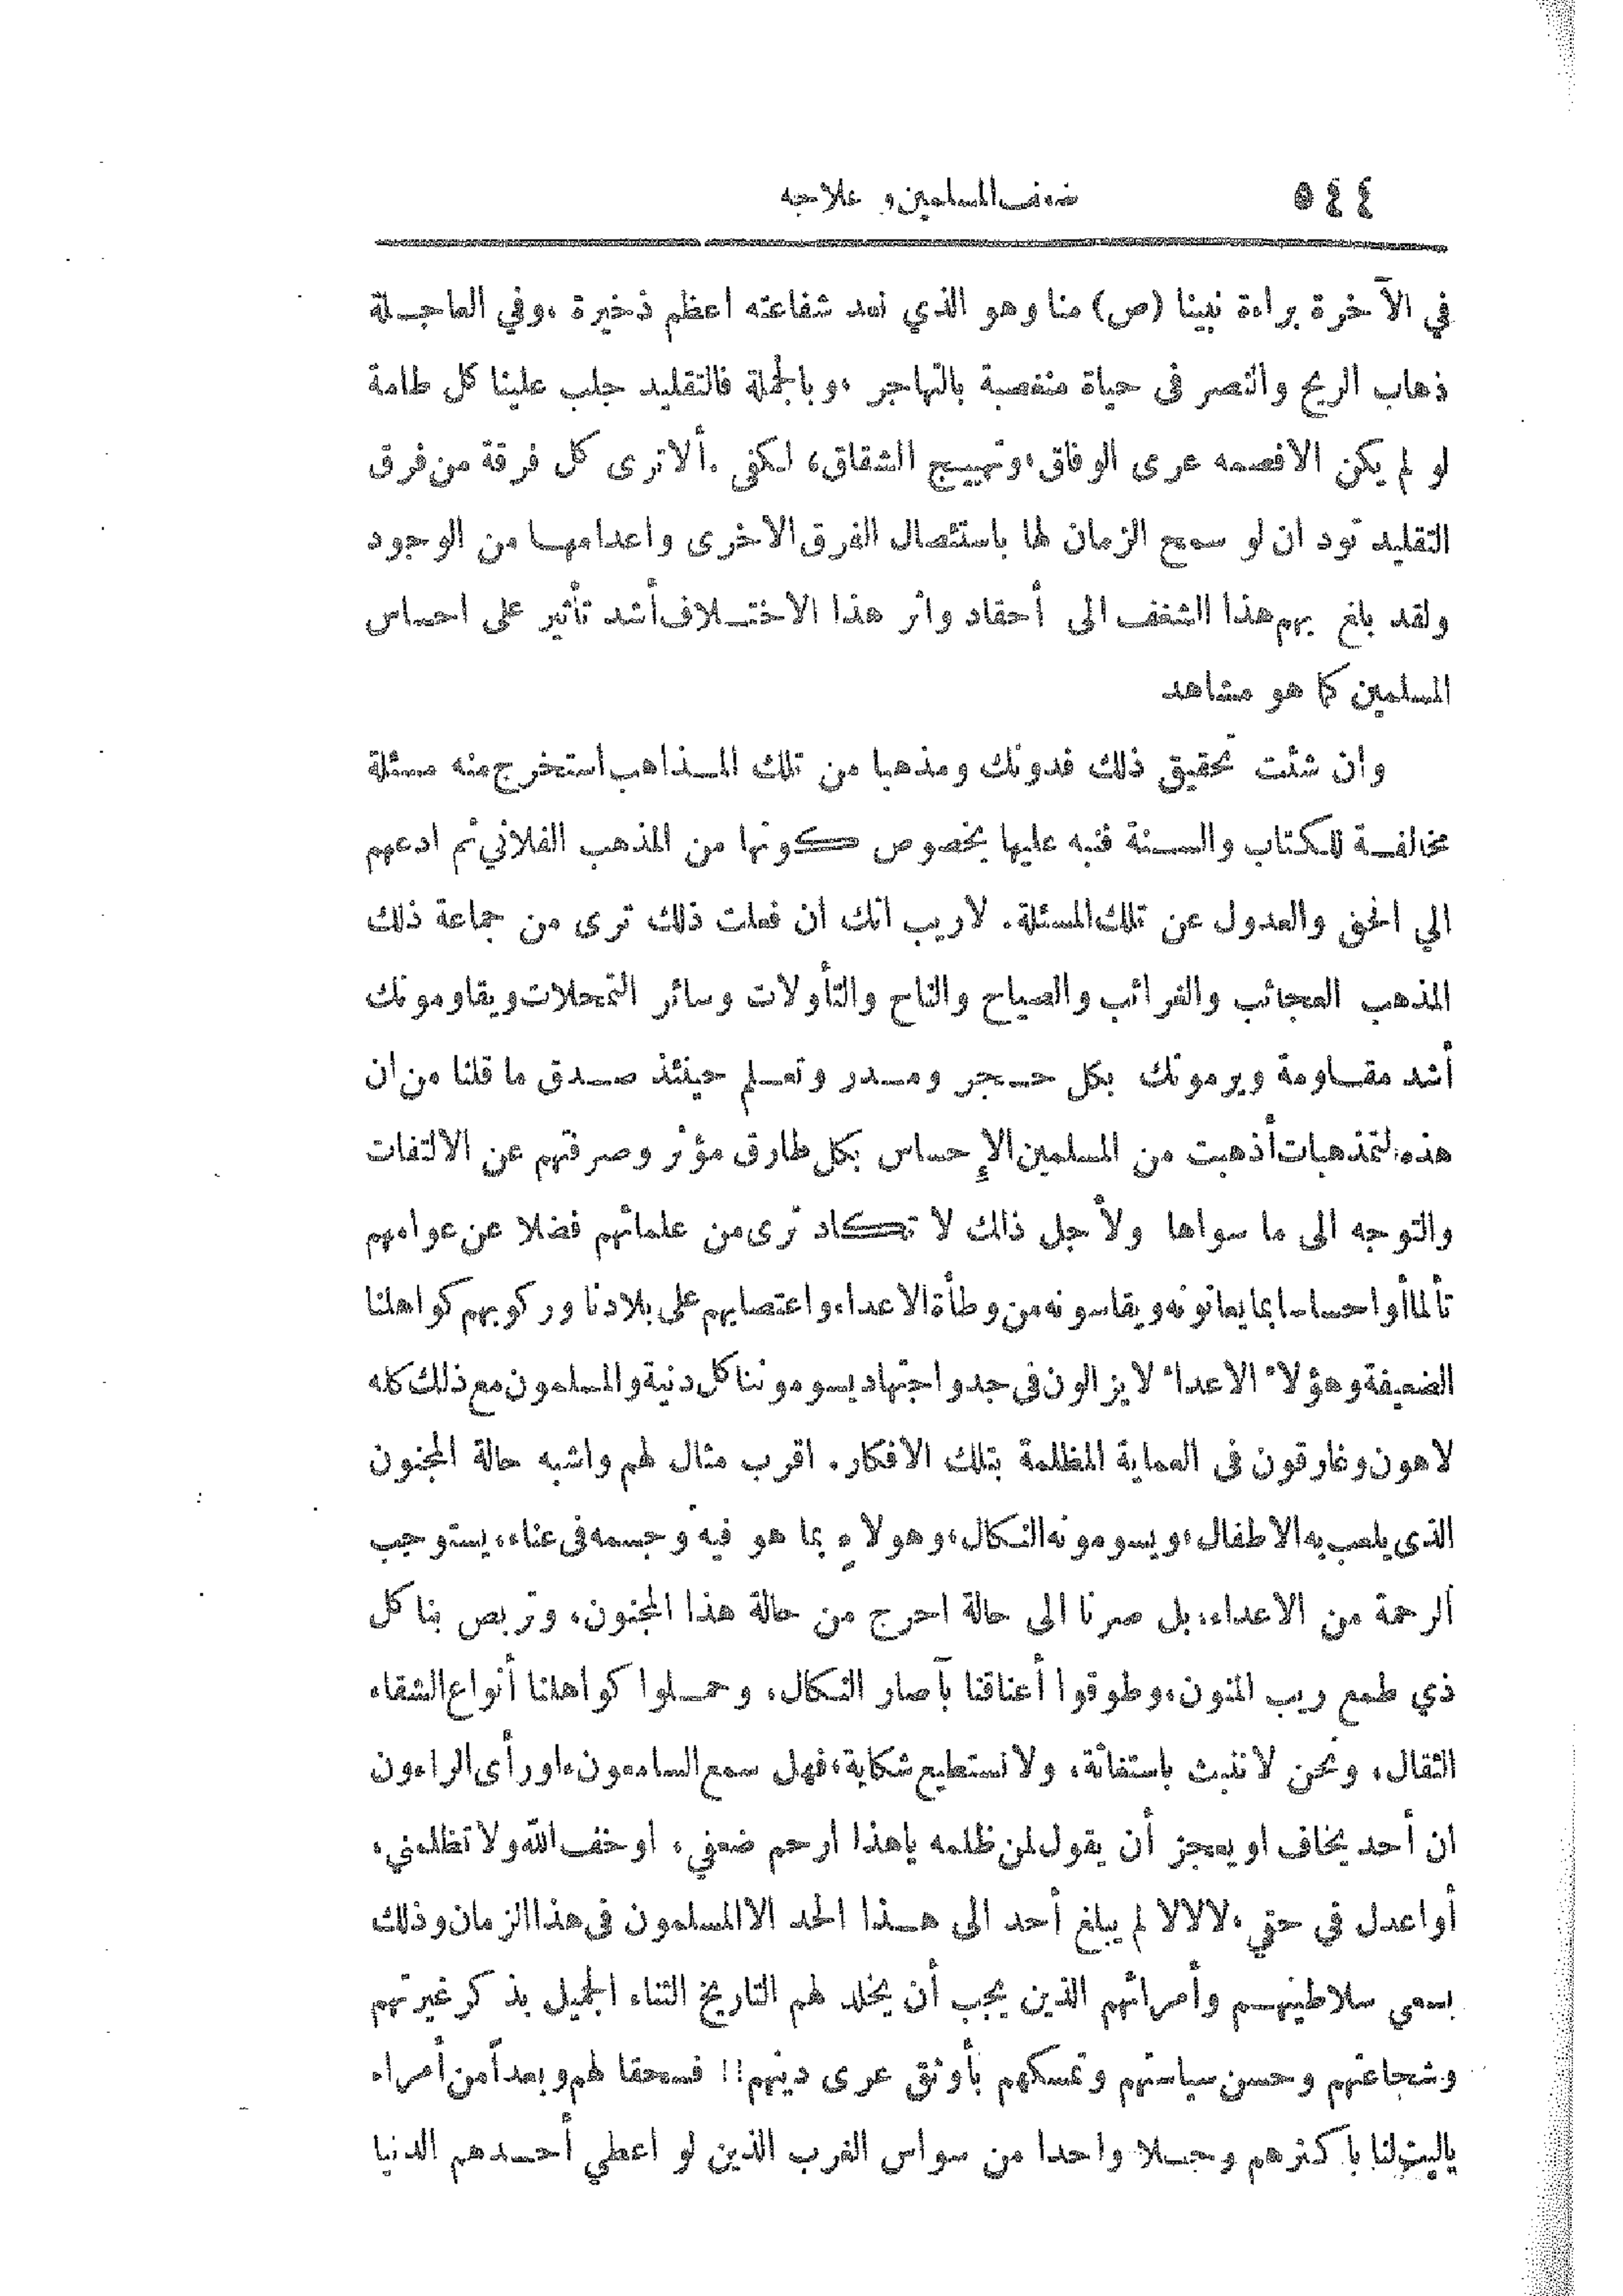 ٥٤٤ ضعف المسلمين و علاجه
في الآخرة براءة نبينا (ص) منا وهو الذي نعد شفاعته اعظم ذخيرة ،وفي العاجلة
ذهاب الريح والنصر في حياة منغصبة بالتهاجر ،وبالجملة فالتقليد جلب علينا كل طامة
لو لم يكن الافصمه عرى الوفاق،وتهييج الشقاق، لكفى .ألا ترى كل فرقة من فرق
التقليد تود ان لو سمح الزمان لها باستئصال الفرق الاخرى واعدامها من الوجود
ولقد بلغ بهم هذا الشغف الى أحقاد واثر هذا الاختلاف أشد تأثير على احساس
المسلمين كما هو مشاهد
وان شئت تحقيق ذلك فدونك ومذهبا من تلك المذاهب استخرج منه مسئلة
مخالفة للكتاب والسنة فنبه عليها بخصوص كونها من المذهب الفلاني ثم ادعهم
الي الحق والعدول عن تلك المسئلة. لاريب انك ان فعلت ذلك ترى من جماعة ذلك
المذهب العجائب والغرائب والصياح والناح والتأولات وسائر التمحلات ويقاومونك
أشد مقاومة ويرمونك بكل حجر ومدر وتعلم حينئذ صدق ما قلنا من ان
هذه التمذهبات أذهبت من المسلمين الإحساس بكل طارق مؤثر وصرفتهم عن الالتفات
والتوجه الى ما سواها ولأجل ذالك لا تكاد ترى من علمائهم فضلا عن عوامهم
تألما أو احساسا بما يعانونه ويقاسونه من وطأة الاعداء واعتصابهم على بلادنا وركوبهم كواهلنا
الضعيفة وهؤلاء الاعداء لايزالون في جد واجتهاد يسوموننا كل دنية والمسلمون مع ذلك كله
لاهون وغارقون في العماية المظلمة بتلك الافكار. اقرب مثال لهم واشبه حالة المجنون
الذى يلعب به الاطفال،ويسومونه النكال،وهولاء بما هو فيه وجسمه فى عناء،يستوجب
الرحمة من الاعداء،بل صرنا الى حالة احرج من حالة هذا المجنون، وتربص بنا كل
ذي طمع ريب المنون،وطوقوا أعناقنا بآصار النكال، وحملوا كواهلنا أنواع الشقاء
الثقال، ونحن لا ننبث باستغاثة، ولا نستطيع شكاية،فهل سمع السامعون،اورأى الراءون
ان أحد يخاف او يعجز أن يقول لمن ظلمه ياهذا ارحم ضعفي، اوخف الله ولا تظلمني،
أو اعدل في حقي ،لالالا لم يبلغ أحد الى هذا الحد الا المسلمون فى هذا الزمان وذلك
بسعي سلاطينهم وأمرائهم الذين يجب أن يخلد لهم التاريخ الثناء الجميل بذكر غيرتهم
وشجاعتهم وحسن سياستهم وتمسكهم بأوثق عرى دينهم!! فسحقا لهم وبعداً من أمراء
ياليت لنا باكثرهم وجلا واحدا من سواس الغرب الذين لو اعطي أحدهم الدنيا